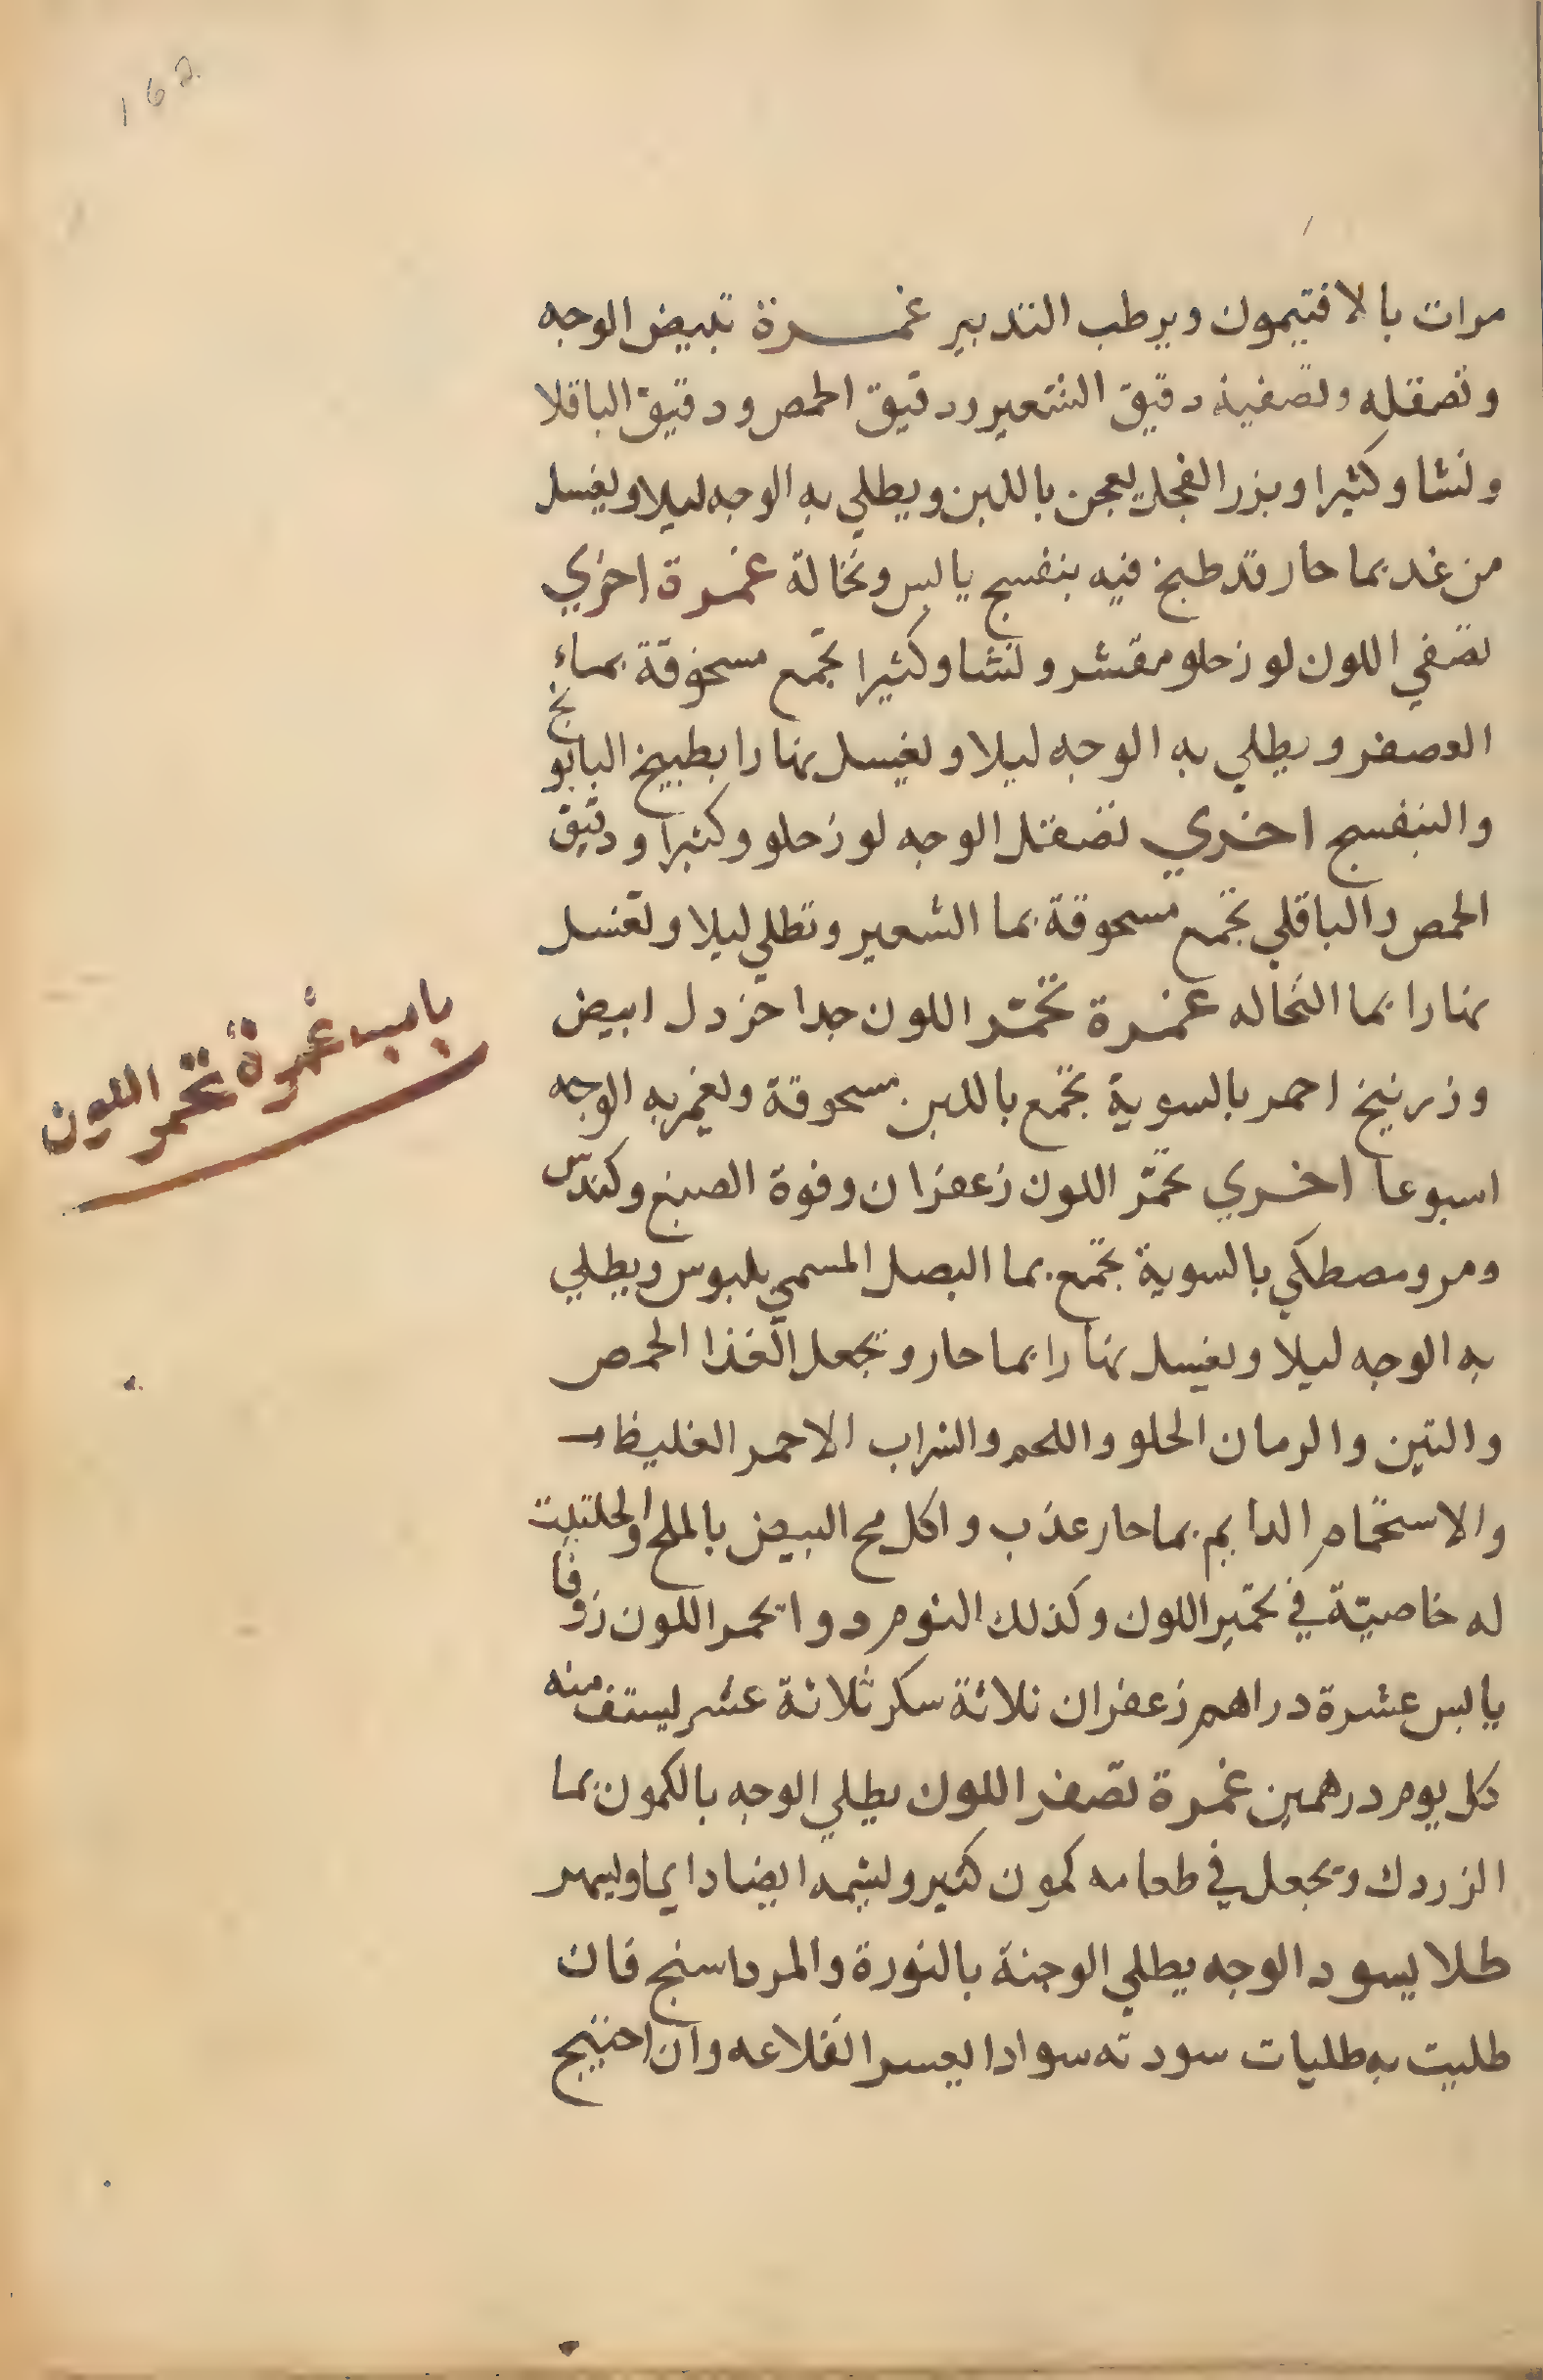 162
مرات بالافتيمون ويرطب التدبير غمرة تبيض الوجه
وتصقله وتصفيه دقيق الشعير ودقيق الحمص ودقيق الباقلا
ونشا وكثيرا وبزر الفجل يعجن باللبن ويطلي به الوجه ليلا ويغسل
من غد بما حار قد طبخ فيه بنفسج يابس ونخالة غمرة اخري
تصفي اللون لوز حلو مقشر ونشا وكثيرا تجمع مسحوقة بماء
العصفر ويطلي به الوجه ليلا ويغسل نهارا بطبيخ البابونج
والبنفسج اخري تصقل الوجه لوز حلو وكثيرا ودقيق
الحمص والباقلي تجمع مسحوقة بما الشعير وتطلي ليلا وتغسل
نهارا بما النخاله غمرة تحمّر اللون جدا خردل ابيض
وزرنيخ احمر بالسوية تجمع باللبن مسحوقة ويغمر به الوجه
اسبوعا اخري تحمّر اللون زعفران وفوة الصبغ وكندس
ومر ومصطكي بالسوية تجمع بما البصل المسمي بلبوس ويطلي
به الوجه ليلا ويغسل نهارا بما حار وتجعل الغذا الحمص
والتين والرمان الحلو واللحم والشراب الاحمر الغليظ
والاستحمام الدايم بما حار عذب واكل مح البيض بالملح والحلتيت
له خاصيّة في تحمير اللون وكذلك الثوم دوا يحمر اللون زوفا
يابس عشرة دراهم زعفران ثلاثة سكر ثلاثة عشر يستف منه
كل يوم درهمين غمرة تصفر اللون يطلي الوجه بالكمون بما
الزردك ويجعل في طعامه كمون كثير ويشمه ايضا دايما ويسهر
طلا يسود الوجه يطلي الوجنة بالنورة والمرداسنج فان
طليت به طليات سودته سوادا يعسر انقلاعه وان احتيج
باب غمرة تحمر اللون